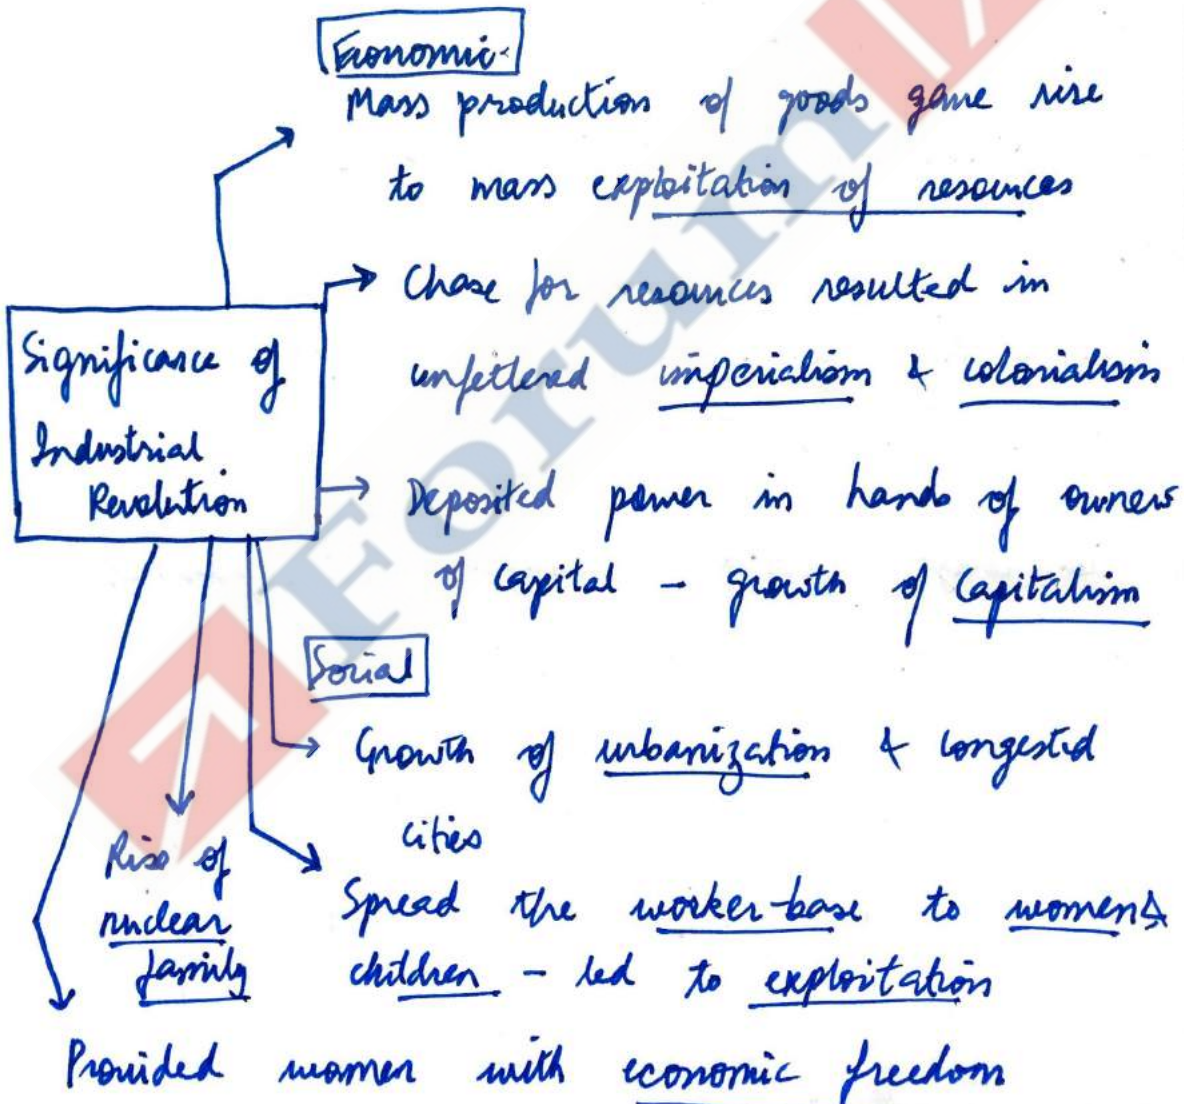 Economic
Mass production of goods gave rise
to mass exploitation of resources
Chase for resources resulted in
unfettered imperialism & colonialism
Significance of
Industrial
Revolution
Deposited power in hands of owners
of capital - growth of Capitalism
Social
Growth of urbanization & congested
cities
Rise of
nuclear
family
Spread the worker-base to women &
children - led to exploitation
Provided women with economic freedom
Forum